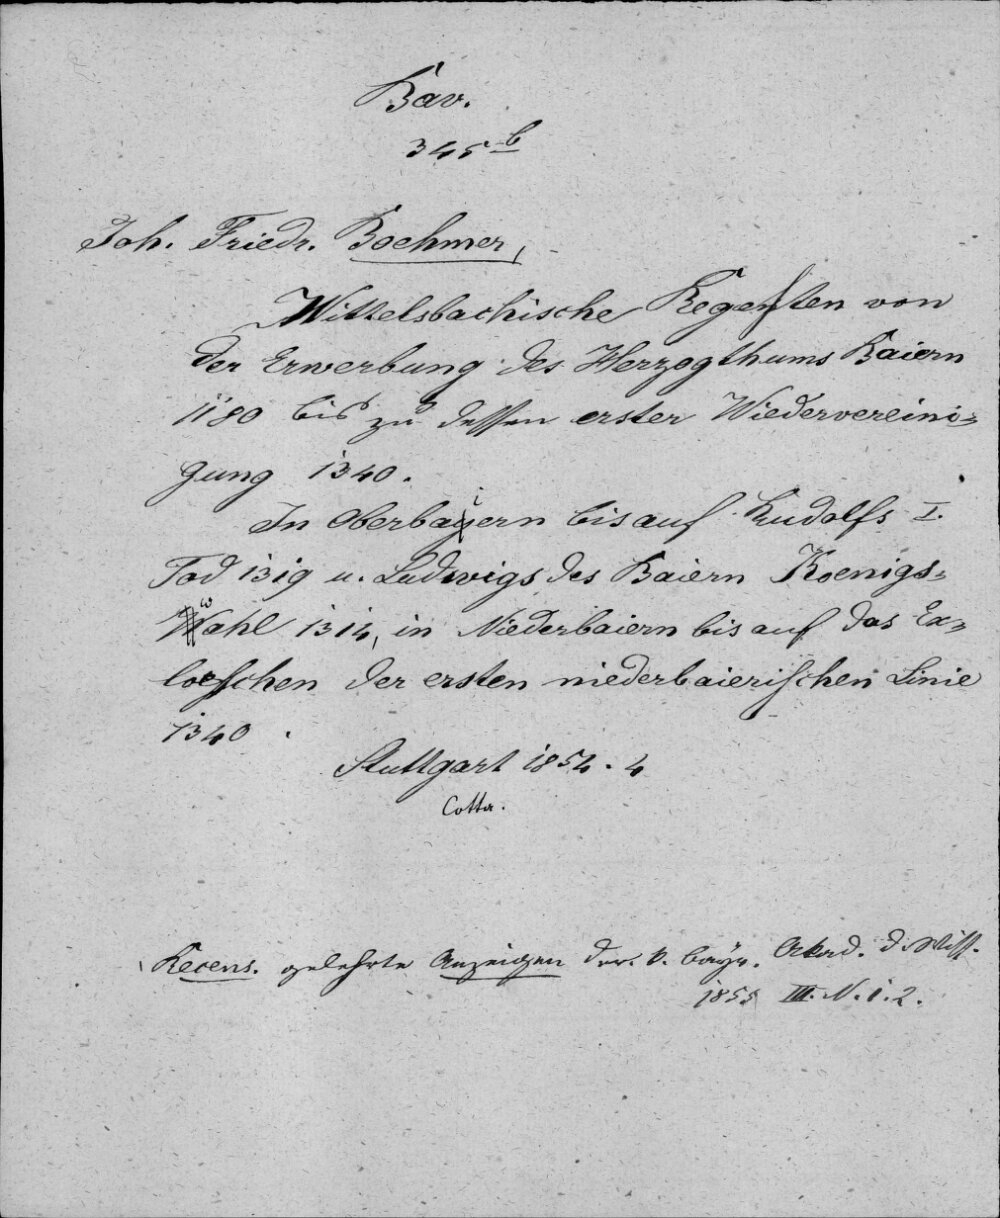 Bav.
345 b
Joh. Friedr. Boehmer,
Wittelsbachische Regesten von
der Erwerbung des Herzogthums Baiern
1180 bis zu dessen erster Wiedervereini=
gung 1340.
In Oberbaiern bis auf Rudolfs I.
Tod 1319 u. Ludwigs des Baiern Koenigs=
wahl 1314, in Niederbaiern bis auf das Er=
loeschen der ersten niederbaierischen Linie
1340.
Stuttgart 1854. 4
Cotta.
Recens. gelehrte Anzeigen der k. bayr. Akad. d. Wiss.
1855 III. N. 1. 2.